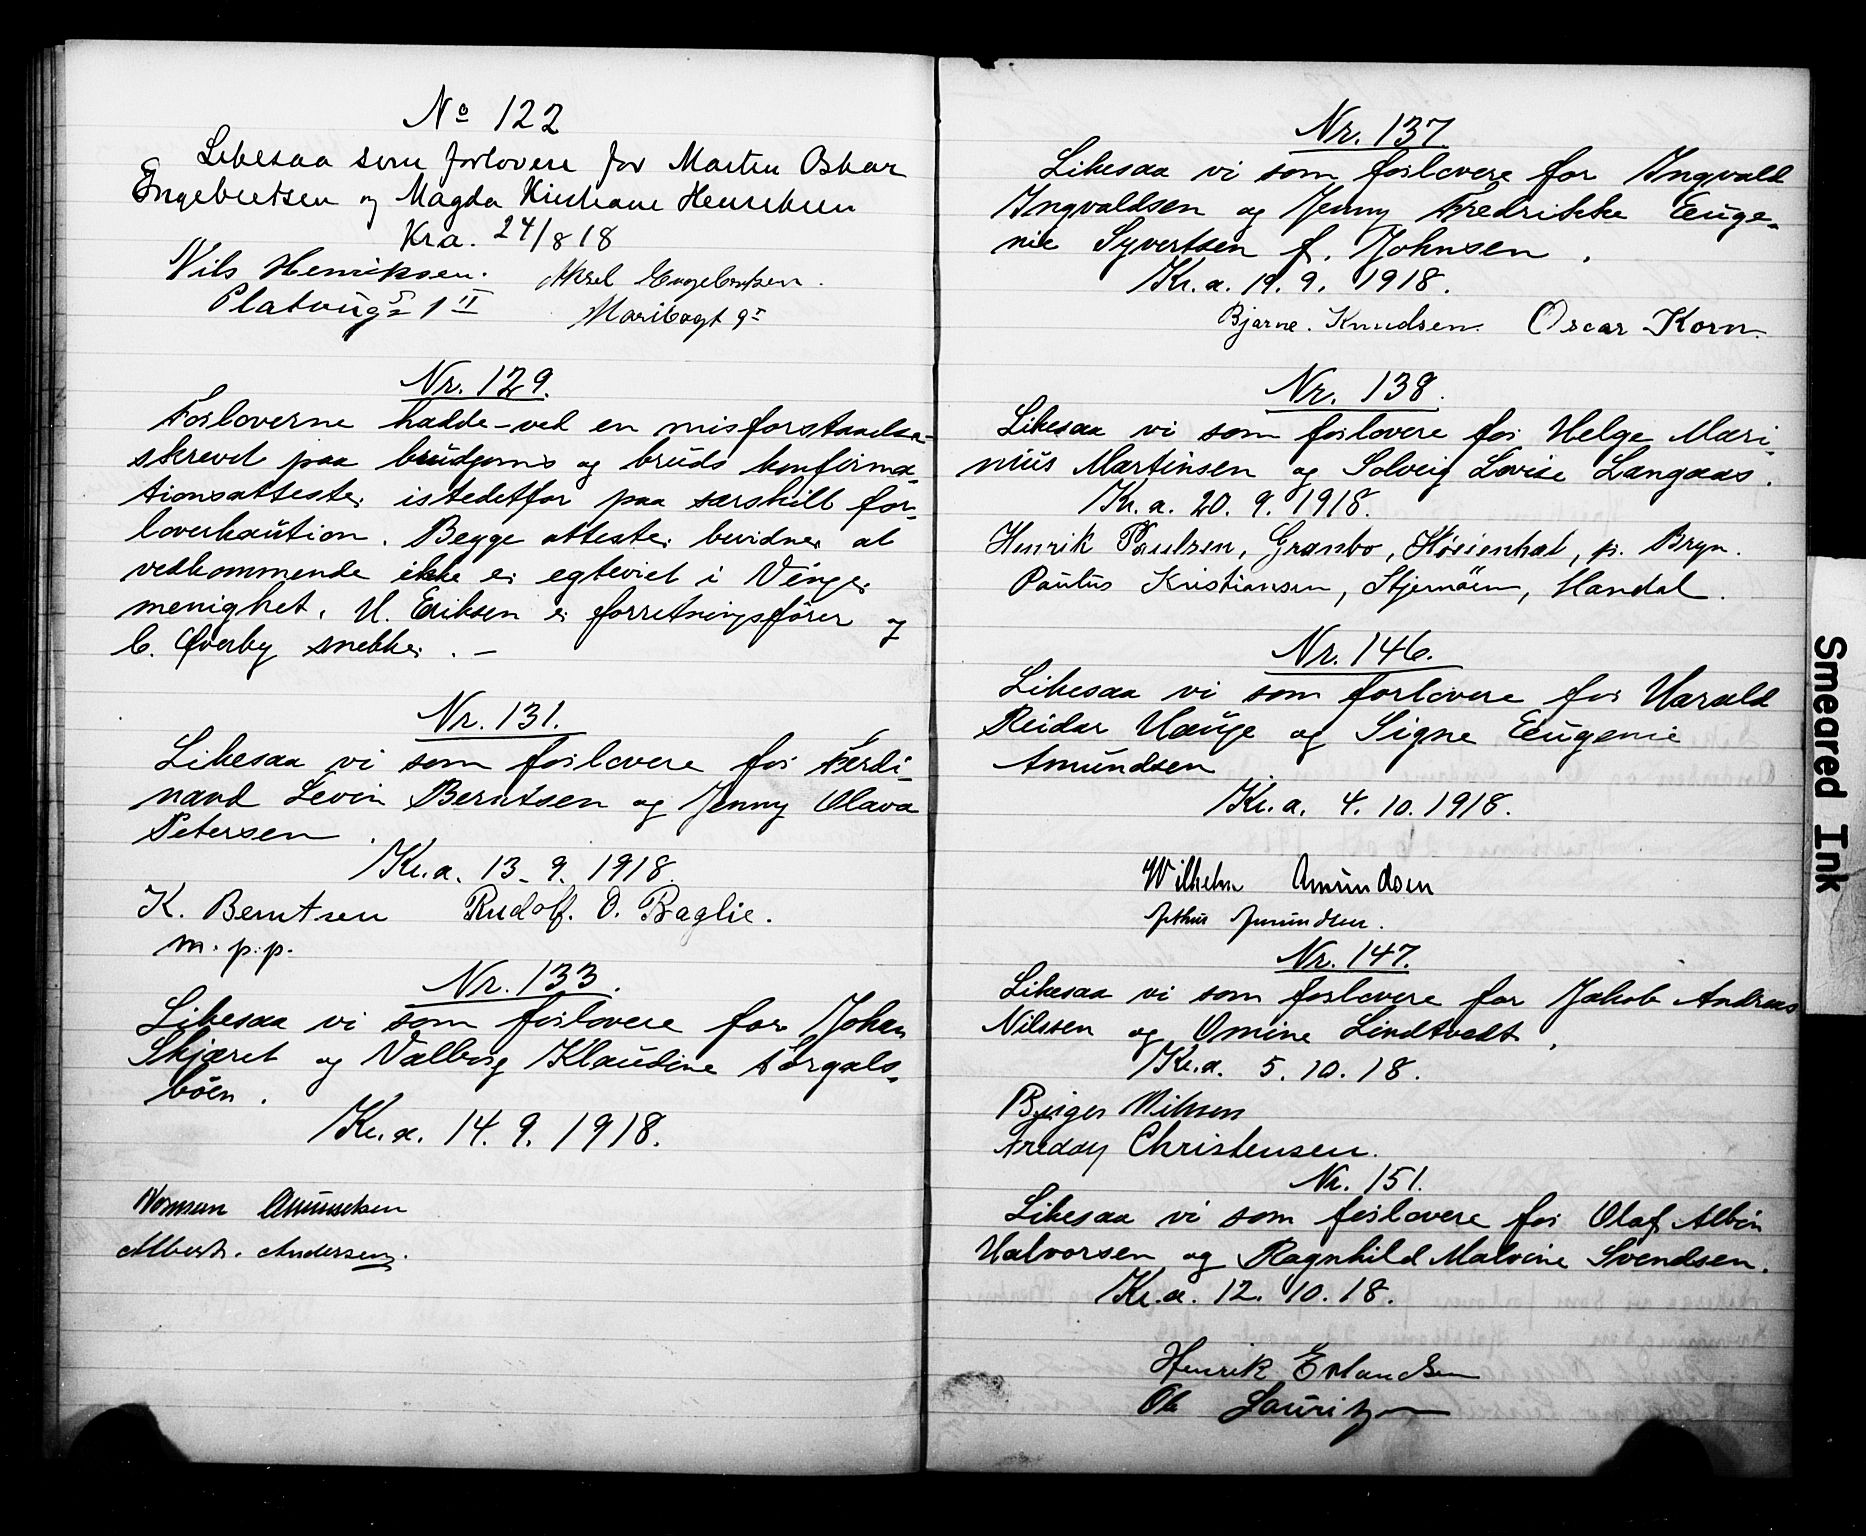 No 122
Likesaa som forlovere for Martin Oskar
Engebretsen og Magda Kristiane Henriksen
Kra. 24/8 18
Nils Henriksen. Aksel Engebretsen.
Platougt 1 II Maribogt 9 I
Nr. 129.
Forloverne hadde - ved en misforstaaelse -
skrevet paa brudgoms og bruds konfirma-
tionsattester istedetfor paa særskilt for-
loverkaution. Begge attester bevidner at
vedkommende ikke er egteviet i Vinger
menighet. H. Eriksen er forretningsfører og
C. Øverby snekker. -
Nr. 131.
Likesaa vi som forlovere for Ferdi-
nand Levin Berntsen og Jenny Olava
Petersen.
Kr.a. 13. 9. 1918.
K. Berntsen Rudolf. O. Baglie.
m. p. p.
Nr. 133.
Likesaa vi som forlovere for Johan
Skjæret og Valborg Klaudine
böen.
Kr.a. 14. 9. 1918.
Amundsen
Albert. Andersen.
Nr. 137.
Likesaa vi som forlovere for Ingvald
Ingvaldsen og Jenny Fredrikke Euge-
nie Syvertsen f. Johnsen.
Kr.a. 19. 9. 1918.
Bjarne. Knudsen. Oscar Korn.
Nr. 138.
Likesaa vi som forlovere for Helge Mari-
nius Martinsen og Solveig Lovise Langaas.
Kr.a. 20. 9. 1918.
Henrik Paulsen, Granbo, p. Bryn.
Paulus Kristiansen, Mandal.
Nr. 146.
Likesaa vi som forlovere for Harald
Reidar Hauge og Signe Eugenie
Amundsen
Kr.a. 4. 10. 1918.
Wilhelm Amundsen
Arthur Amundsen.
Nr. 147.
Likesaa vi som forlovere for Jakob Andreas
Nilssen og Omine Lindtvedt.
Kr.a. 5. 10. 18.
Birger Nilssen
Freddy Christensen.
Nr. 151.
Likesaa vi som forlovere for Olaf Albin
Halvorsen og Ragnhild Malvine Svendsen.
Kr.a. 12. 10. 18.
Henrik Erlandsen
Ole Lauritzen
Smeared Ink